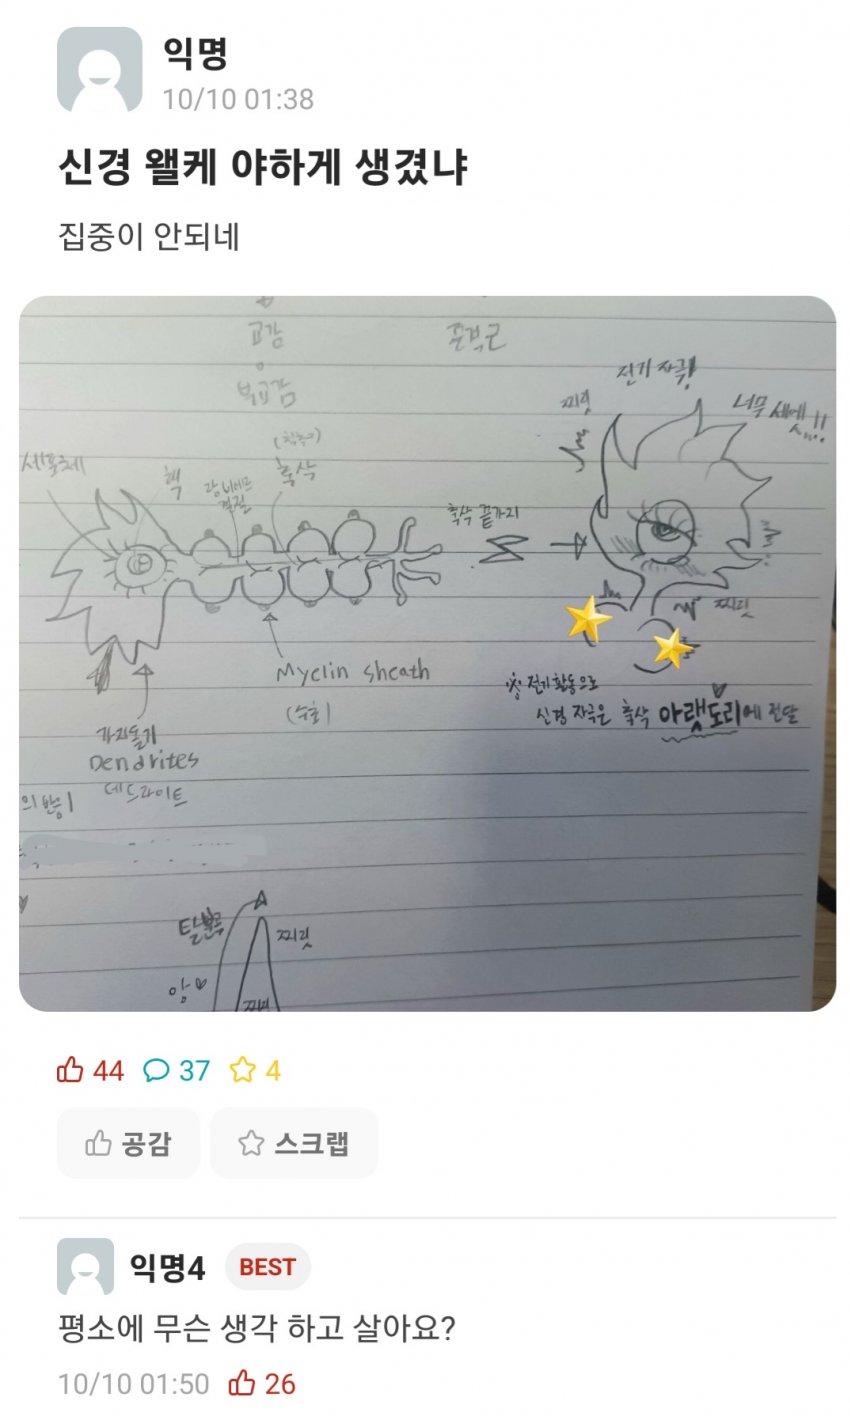 익명
10/10 01:38
신경 왤케 야하게 생겼냐
집중이 안되네
교감
부교감
전기 자극!
찌릿
너무 세에!!
세포체
핵
랑비에르
결절
(척추)
축삭
축삭 끝까지
찌릿
Myelin sheath
(수초)
전기활동으로
신경 자극은 축삭 아랫도리에 전달
가지돌기
Dendrites
데드라이트
의 반응
탈분극
찌릿
앙
44 37 4
공감 스크랩
익명4 BEST
평소에 무슨 생각 하고 살아요?
10/10 01:50 26